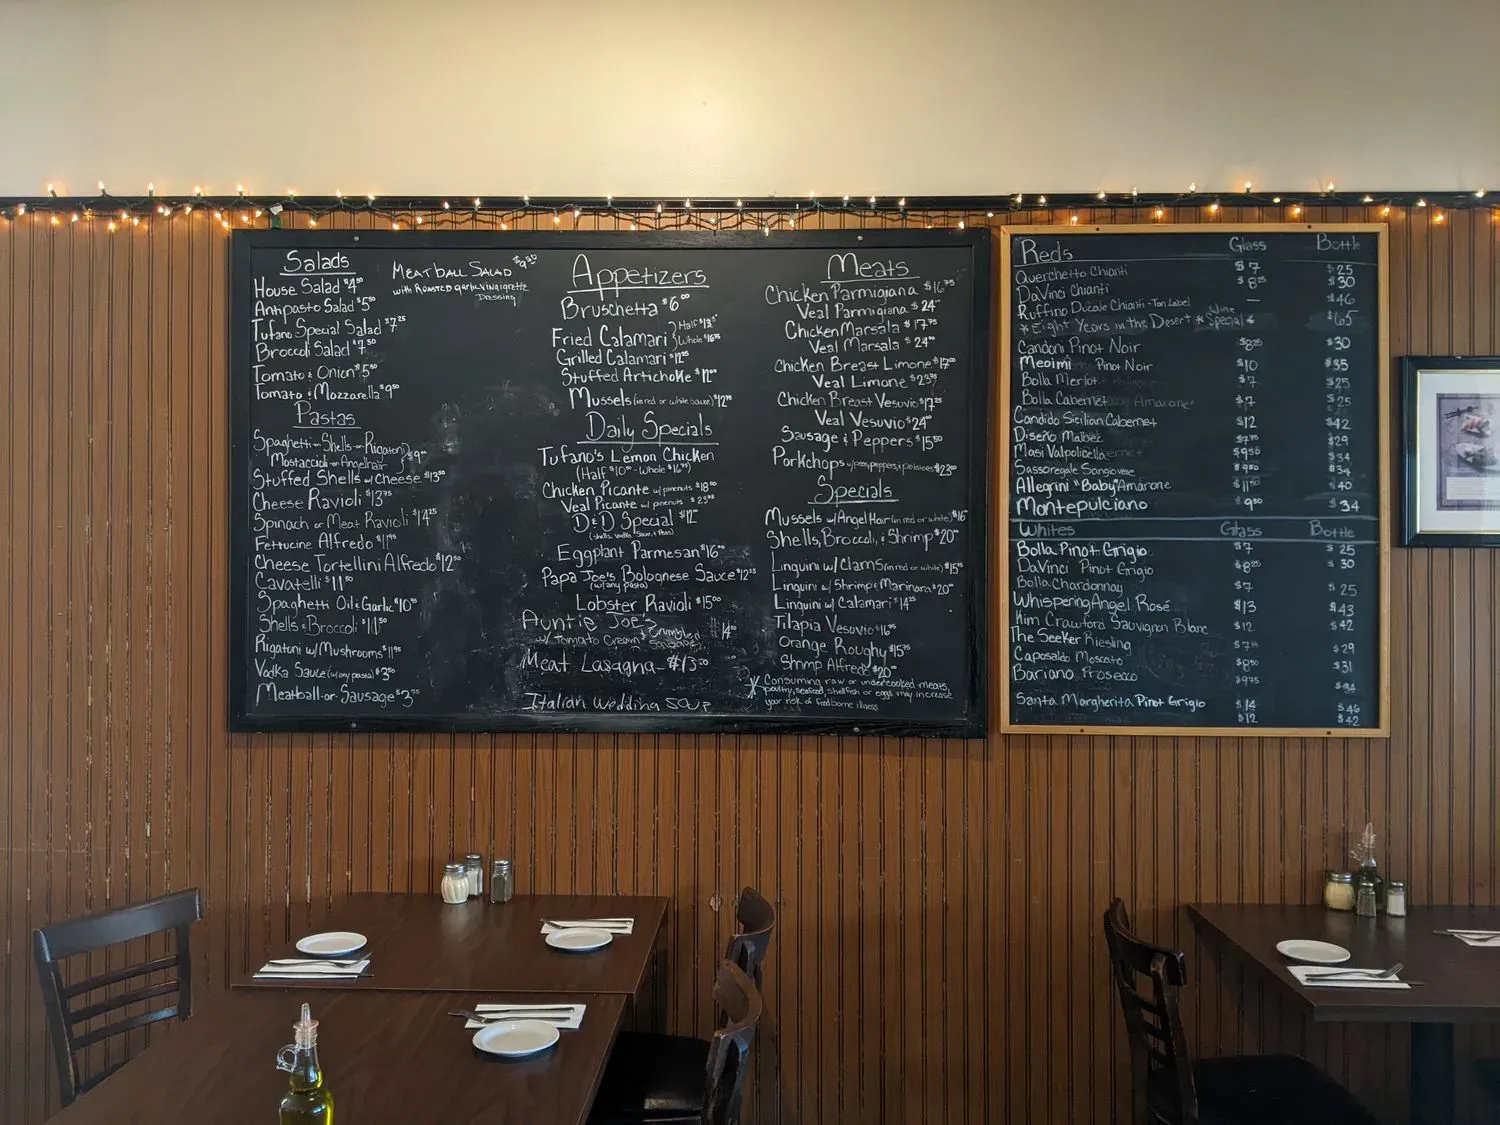 Salads
House Salad $4⁵⁰
Antipasto Salad $5⁵⁰
Tufano Special Salad $7²⁵
Broccoli Salad $7⁵⁰
Tomato & Onion $5⁵⁰
Tomato & Mozzarella $9⁵⁰
MEATBALL SALAD $9⁵⁰
with ROASTED garlic vinaigrette
Dressing
Pastas
Spaghetti or Shells or Rigatoni
Mostaccioli or Angelhair $9⁰⁰
Stuffed Shells w/ Cheese $13⁵⁰
Cheese Ravioli $13⁷⁵
Spinach or Meat Ravioli $14²⁵
Fettucine Alfredo $11⁹⁵
Cheese Tortellini Alfredo $12⁵⁰
Cavatelli $11⁵⁰
Spaghetti Oil & Garlic $10⁹⁵
Shells & Broccoli $11⁵⁰
Rigatoni w/ Mushrooms $11⁹⁵
Vodka Sauce (w/any pasta) $3⁵⁰
Meatball or Sausage $3⁷⁵
Appetizers
Bruschetta $6⁰⁰
Fried Calamari Half $13
Whole $16⁷⁵
Grilled Calamari $12²⁵
Stuffed Artichoke $12⁰⁰
Mussels (in red or white sauce) $12⁷⁵
Daily Specials
Tufano's Lemon Chicken
(Half $10⁰⁰ - Whole $16⁷⁵)
Chicken Picante w/ pinenuts $18⁰⁰
Veal Picante w/ pinenuts $23⁷⁵
D&D Special $12
(shells, vodka sauce, & Peas)
Eggplant Parmesan $16⁰⁰
Papa Joe's Bolognese Sauce $12²⁵
(w/any pasta)
Lobster Ravioli $15⁰⁰
Auntie Joe's
w/ Tomato Cream & Crumbled Sausage $14⁵⁰
Meat Lasagna - $13⁵⁰
Italian Wedding SOUP
Meats
Chicken Parmigiana $16⁷⁵
Veal Parmigiana $24
Chicken Marsala $17⁷⁵
Veal Marsala $24⁰⁰
Chicken Breast Limone $17⁰⁰
Veal Limone $23⁷⁵
Chicken Breast Vesuvio $17²⁵
Veal Vesuvio $24⁰⁰
Sausage & Peppers $15⁵⁰
Porkchops w/ peas, peppers, & potatoes $23⁰⁰
Specials
Mussels w/ Angel Hair (in red or white) $16
Shells, Broccoli, & Shrimp $20
Linguini w/ Clams (in red or white) $15⁷⁵
Linguini w/ Shrimp & Marinara $20
Linguini w/ Calamari $14²⁵
Tilapia Vesuvio $16⁷⁵
Orange Roughy $15⁷⁵
Shrimp Alfredo $20⁰⁰
* Consuming raw or undercooked meats,
poultry, seafood, shellfish or eggs may increase
your risk of foodborne illness
Reds Glass Bottle
Querchetto Chianti $7 $25
DaVinci Chianti $8²⁵ $30
Ruffino Ducale Chianti - Tan Label — $46
* Eight Years in the Desert * Wine Special * $65
Candoni Pinot Noir $8²⁵ $30
Meoimi Pinot Noir $10 $35
Bolla Merlot $7 $25
Bolla Cabernet $7 $25
Candido Sicilian Cabernet $12 $42
Diseño Malbec $7⁷⁵ $29
Masi Valpolicella $9⁵⁰ $34
Sassoregale Sangiovese $9⁵⁰ $34
Allegrini "Baby" Amarone $11⁵⁰ $40
Montepulciano $9⁵⁰ $34
Whites Glass Bottle
Bolla Pinot Grigio $7 $25
DaVinci Pinot Grigio $8²⁵ $30
Bolla Chardonnay $7 $25
Whispering Angel Rosé $13 $43
Kim Crawford Sauvignon Blanc $12 $42
The Seeker Riesling $7⁷⁵ $29
Caposaldo Moscato $8⁵⁰ $31
Bariano Prosecco $9⁷⁵ $34
Santa Margherita Pinot Grigio $14 $46
$12 $42